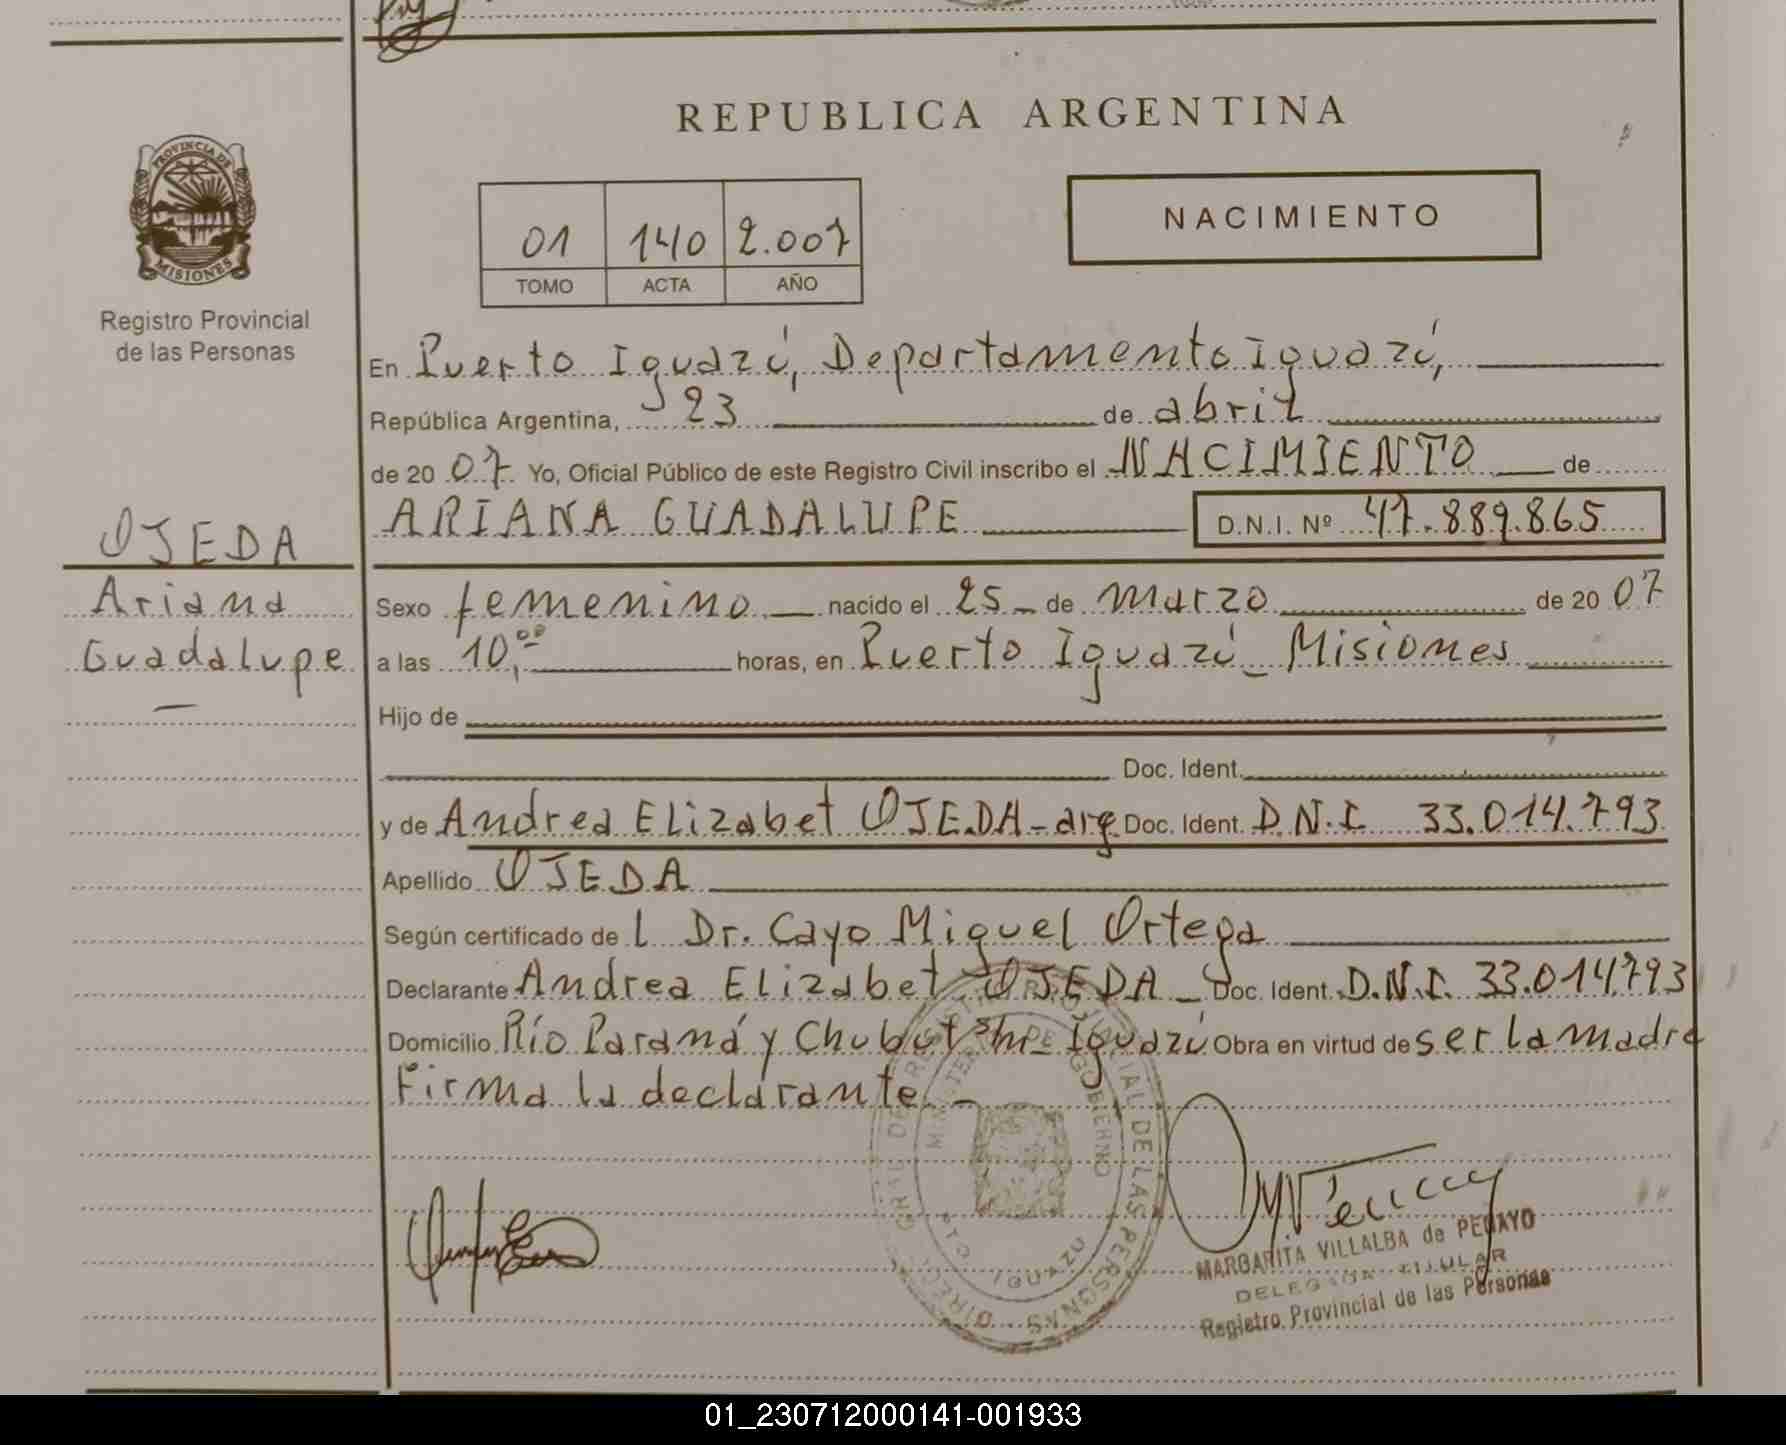 REPUBLICA ARGENTINA
PROVINCIA DE
MISIONES
Registro Provincial
de las Personas
01 140 2.007
TOMO ACTA AÑO
NACIMIENTO
En Puerto Iguazú, Departamento Iguazú,
República Argentina, 23 de abril
de 20 07 Yo, Oficial Público de este Registro Civil inscribo el NACIMIENTO de
ARIANA GUADALUPE D.N.I. Nº 47.889.865
OJEDA
Ariana
Guadalupe
Sexo femenino nacido el 25 de marzo de 20 07
a las 10,00 horas, en Puerto Iguazú - Misiones
Hijo de
Doc. Ident.
y de Andrea Elizabet OJEDA - arg. Doc. Ident. D.N.I. 33.014.793
Apellido OJEDA
Según certificado del Dr. Cayo Miguel Ortega
Declarante Andrea Elizabet OJEDA - Doc. Ident. D.N.I. 33.014.793
Domicilio Río Paraná y Chubut Iguazú Obra en virtud de ser la madre
Firma la declarante. -
DIRECC. GRAL. DEL REGISTRO PROVINCIAL DE LAS PERSONAS
MINISTERIO DE GOBIERNO
PTO. IGUAZU
MARGARITA VILLALBA de PELAYO
DELEGADA TITULAR
Registro Provincial de las Personas
01_230712000141-001933